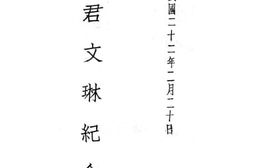 國二十二年二月二十日
君文琳紀